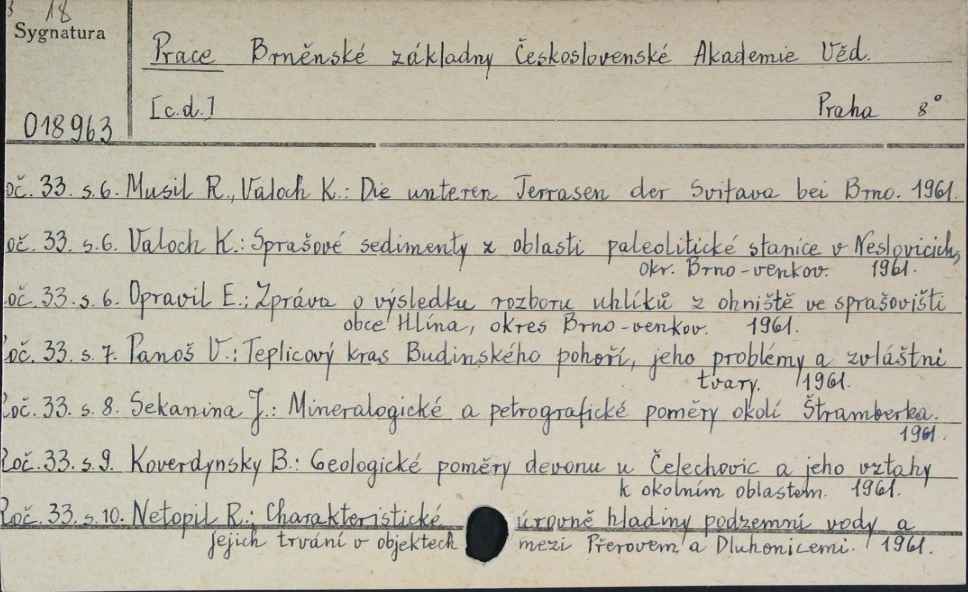 18
Sygnatura
Prace Brněnské základny Československé Akademie Věd.
[c.d.] Praha 8°
018963
oč. 33. s.6. Musil R., Valoch K.: Die unteren Terrasen der Svitava bei Brno. 1961.
oč. 33. s.6. Valoch K.: Sprašové sedimenty z oblasti paleolitické stanice v Neslovicich,
okr. Brno-venkov. 1961.
oč. 33. s. 6. Opravil E.: Zpráva o výsledku rozboru uhlíků z ohniště ve sprašovišti
obce Hlína, okres Brno-venkov. 1961.
oč. 33. s. 7. Panoš V.: Teplicový kras Budinského pohoří, jeho problémy a zvláštni
tvary. 1961.
Roč. 33. s. 8. Sekanina J.: Mineralogické a petrografické poměry okolí Štramberka.
1961.
Roč. 33. s.9. Koverdynsky B.: Geologické poměry devonu u Čelechovic a jeho vztahy
k okolním oblastem. 1961.
Roč. 33. s.10. Netopil R.: Charakteristické úrovně hladiny podzemní vody a
jejich trvání v objektech mezi Přerovem a Dluhonicemi. 1961.